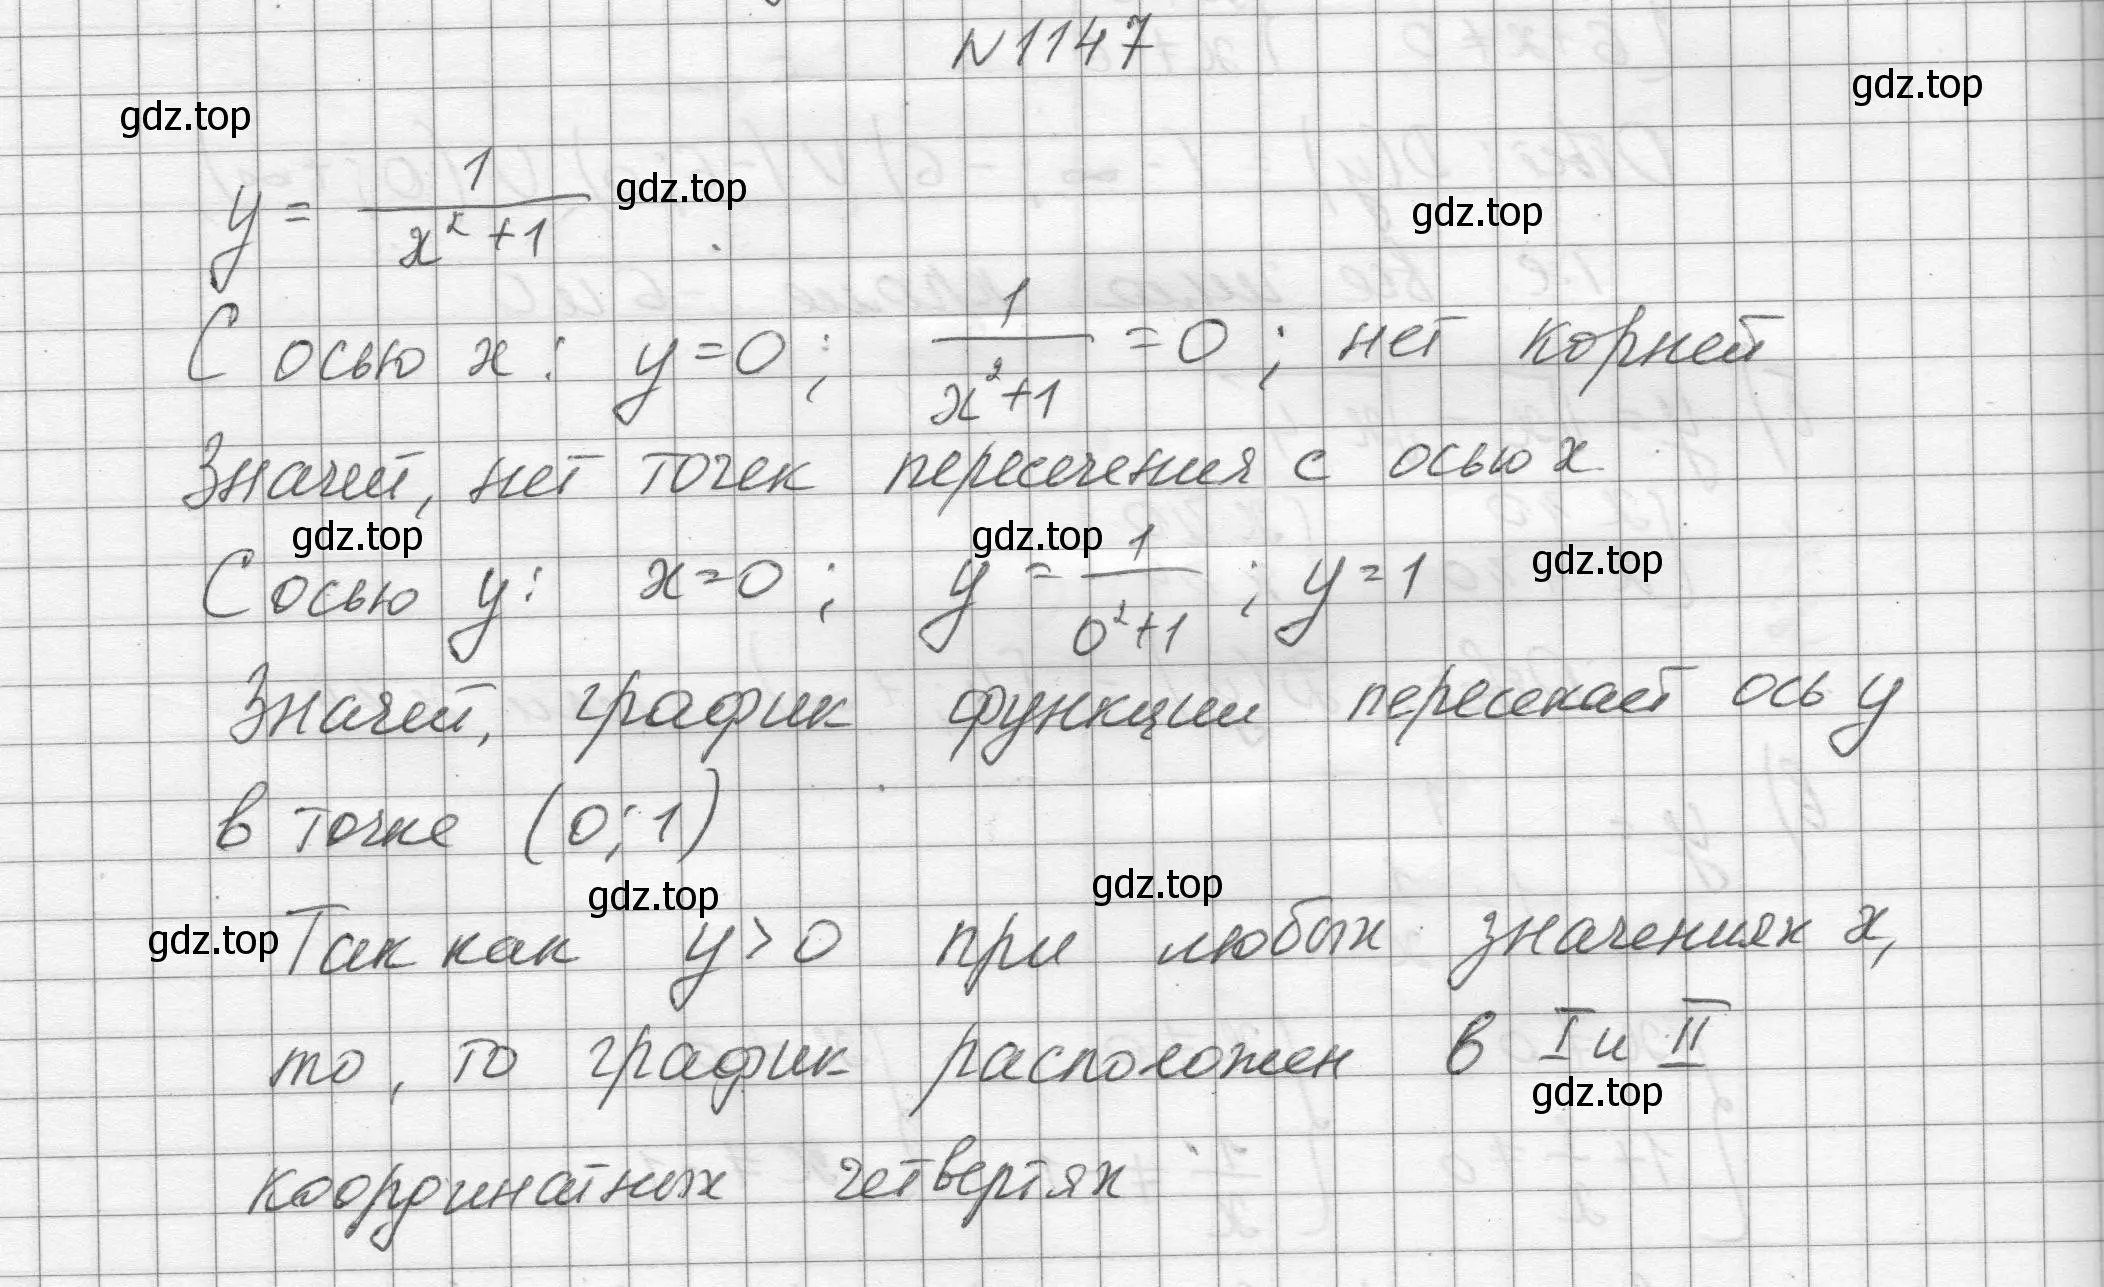 N1147
gdz.top
gdz.top
y = 1/(x²+1) gdz.top
gdz.top
С осью x: y=0; 1/(x²+1) =0; нет корней
Значит, нет точек пересечения с осью x
gdz.top gdz.top gdz.top
С осью y: x=0; y = 1/(0²+1); y=1
Значит, график функции пересекает ось y
в точке (0;1)
gdz.top gdz.top
gdz.top Так как y>0 при любых значениях x,
то, то график расположен в I и II
gdz.top
координатных четвертях